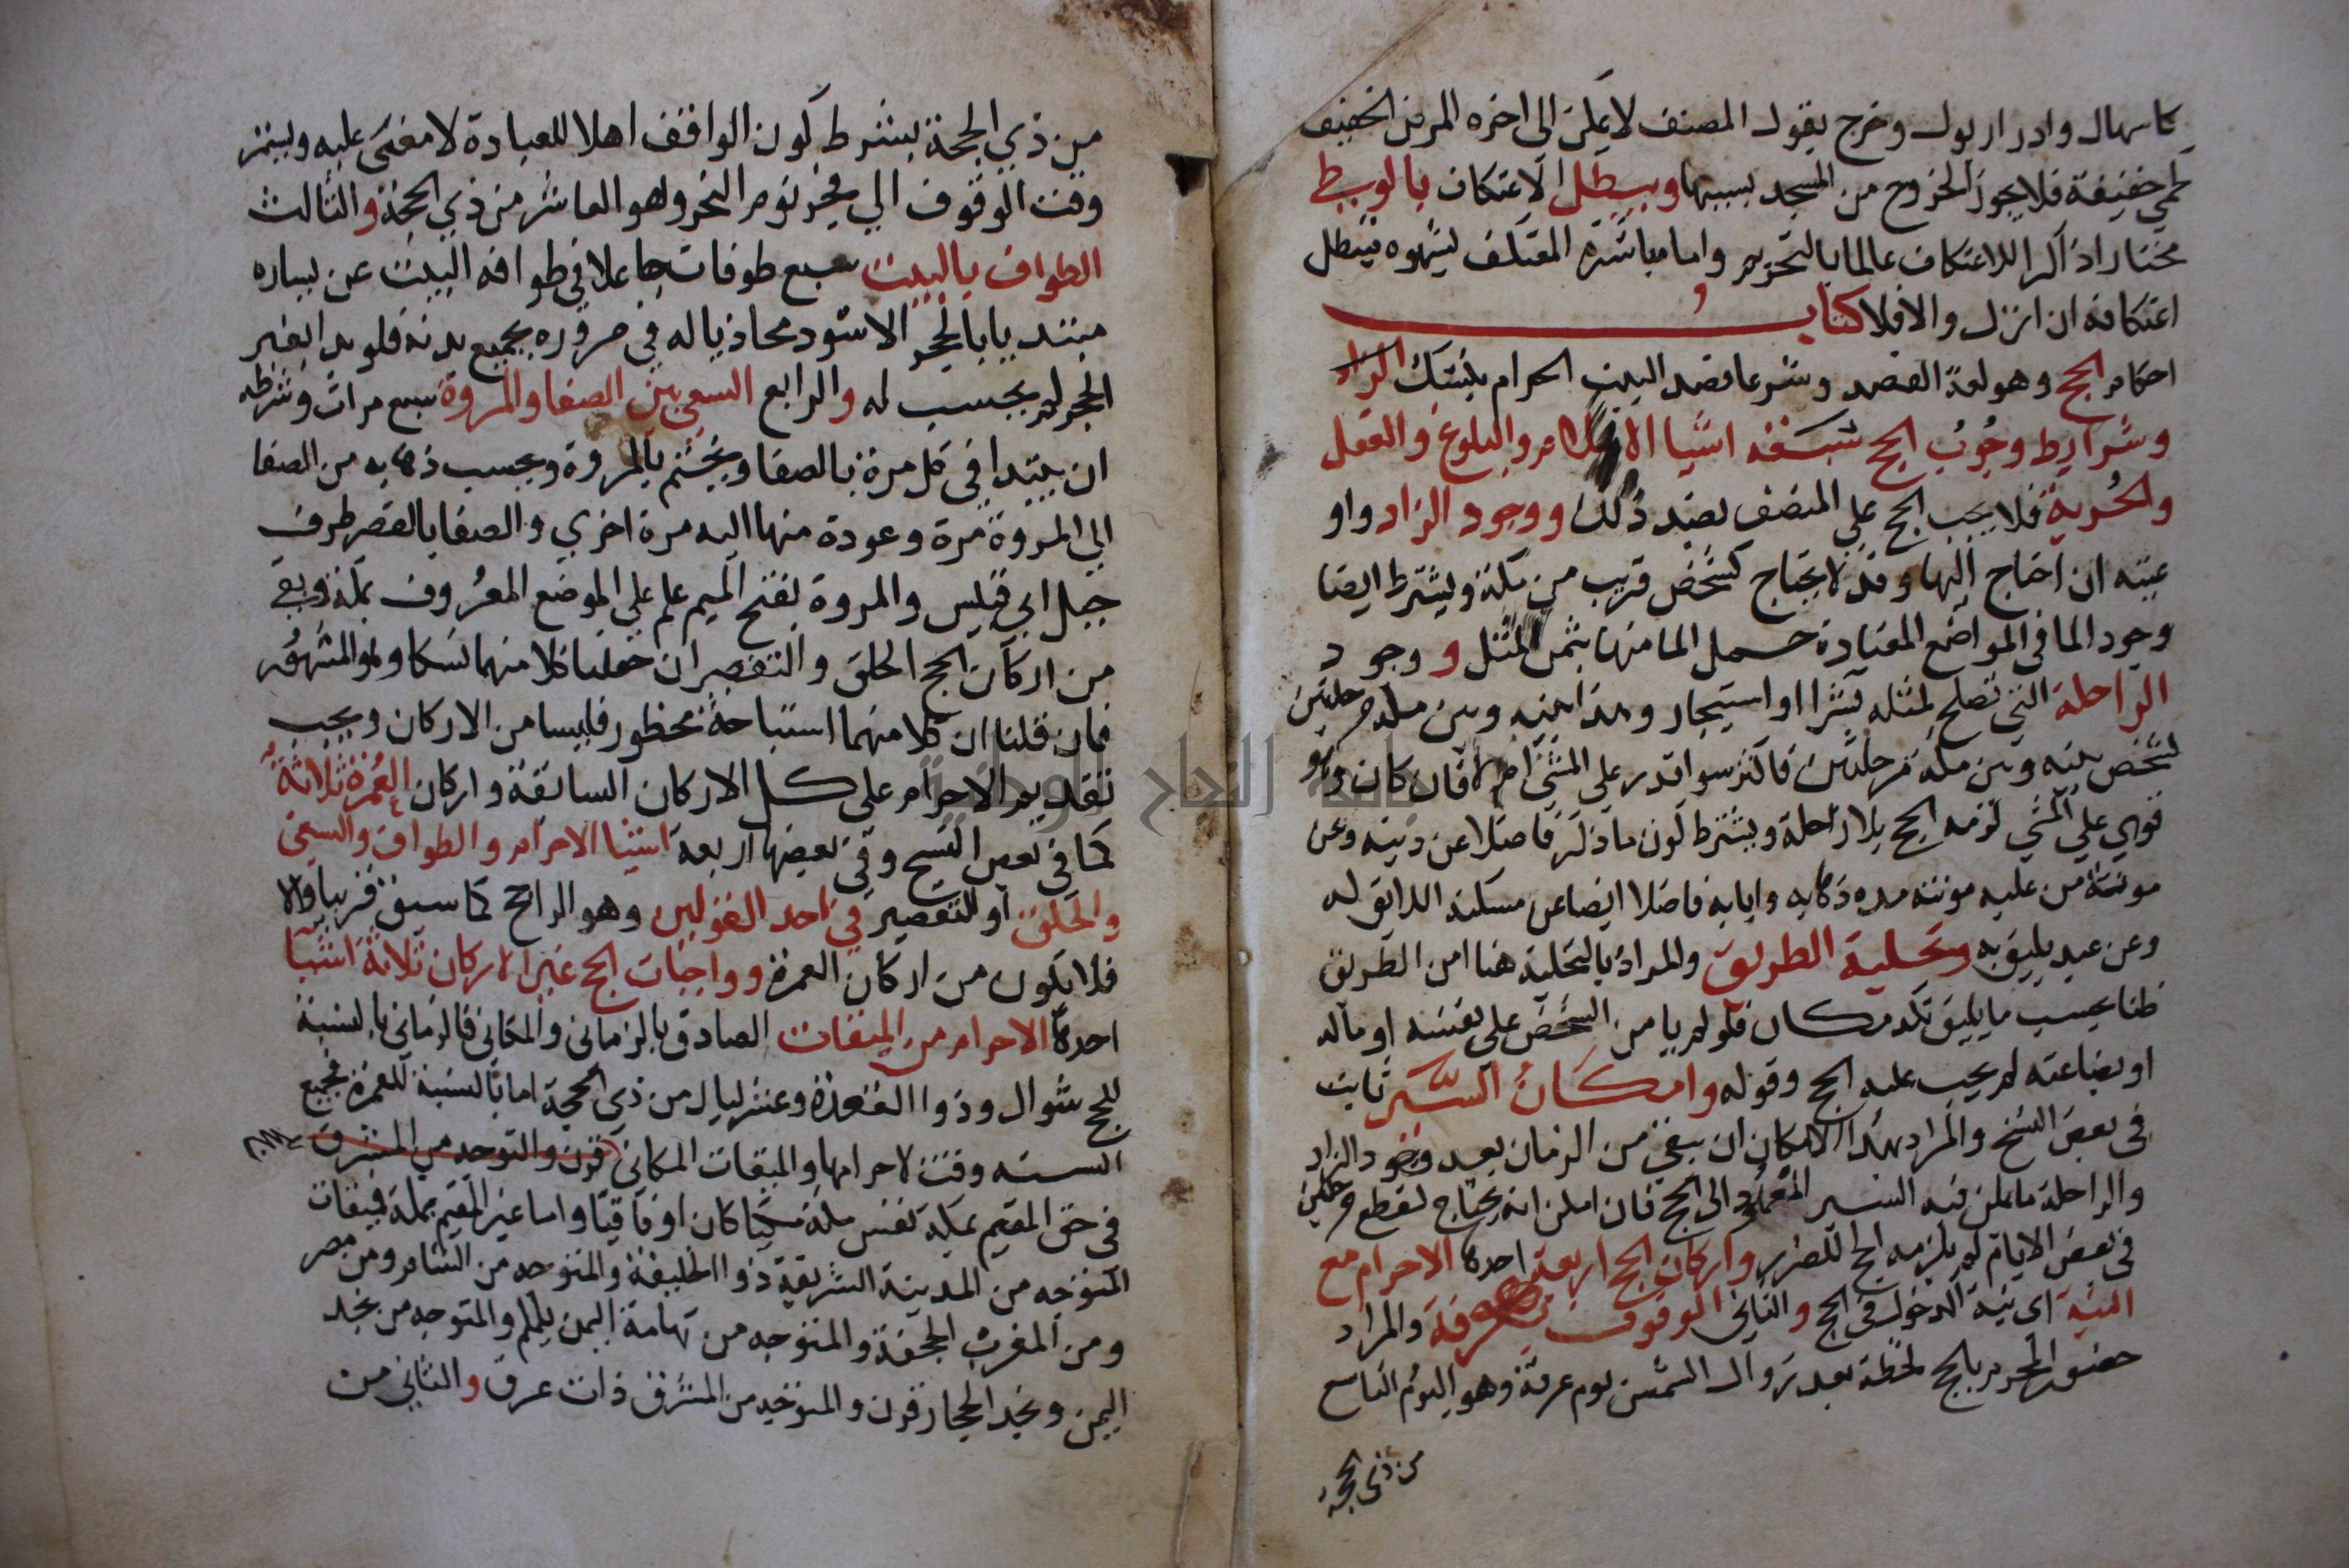 كاسهال وادرار بول وخرج بقول المصنف لا يمكن الى اخره المرض الخفيف
كحمي خفيفة فلا يجوز الخروج من المسجد بسببها ويبطل الاعتكاف بالوطي
مختارا ذاكرا للاعتكاف عالما بالتحريم واما مباشرة المعتكف بشهوة فتبطل
اعتكافه ان انزل والا فلا كتاب
احكام الحج وهو لغة القصد وشرعا قصد البيت الحرام للنسك
وشرايط وجوب الحج سبعة اشيا الاسلام والبلوغ والعقل
والحرية فلا يجب الحج علي المتصف بضد ذلك ووجود الزاد واو
عيته ان احتاج اليها وقد لا يحتاج كشخص قريب من مكة ويشترط ايضا
وجود الما في المواضع المعتادة حمل الما منها بثمن المثل و وجود
الراحلة التي تصلح لمثله بشرا او استيجار وهذا بينه وبين مكة مرحلتين
لشخص بينه وبين مكة مرحلتين فاكثر سوا قدر علي المشي ام لا فان كان وهو
قوي علي المشي لزمه الحج بلا راحلة ويشترط كون ما ذكر فاضلا عن دينه وعن
مونة من عليه مونته مدة ذهابه وايابه فاضلا ايضا عن مسكنه اللايق له
وعن عبد يليق به وتخلية الطريق والمراد بالتخلية هنا امن الطريق
ظنا بحسب ما يليق بكل مكان فلو لم يا من الشخص علي نفسه او ماله
او بضاعته لم يجب عليه الحج وقوله وامكان السير ثابت
في بعض النسخ والمراد بهذا الامكان ان يبقي من الزمان بعد وجود الزاد
والراحلة ما يمكن فيه السير المعهود الى الحج فان امكن انه يحتاج لقطع مرحلتين
في بعض الايام لم يلزمه الحج للضرر واركان الحج اربعة احدها الاحرام مع
النية اى نية الدخول في الحج والثاني الوقوف بعرفة والمراد
حضور المحرم بالحج لحظة بعد زوال الشمس يوم عرفة وهو اليوم التاسع
من ذى الحجة
من ذي الحجة بشرط كون الواقف اهلا للعبادة لا مغمي عليه ويستمر
وقت الوقوف الي فجر يوم النحر وهو العاشر من ذي الحجة والثالث
الطواف بالبيت سبع طوفات جاعلا في طوافه البيت عن يساره
مبتديا بالحجر الاسود محاذيا له في مروره بجميع بدنه فلو بدا بغير
الحجر لم يحسب له والرابع السعي بين الصفا والمروة سبع مرات وشرطه
ان يبتدا في كل مرة بالصفا ويختم بالمروة ويحسب ذهابه من الصفا
الي المروة مرة وعودة منها اليه مرة اخري والصفا بالقصر طرف
جبل ابي قبيس والمروة بفتح الميم علم علي الموضع المعروف بمكة وبقي
من اركان الحج الحلق والتقصير ان جعلنا كلا منهما نسكا وهو المشهور
فان قلنا ان كلا منهما استباحة محظور فليسا من الاركان ويجب
تقديم الاحرام على كل الاركان السابقة واركان العمرة ثلاثة
كما في بعض النسخ وفي بعضها اربعة اشيا الاحرام والطواف والسعي
والحلق او التقصير في احد القولين وهو الراجح كما سبق قريبا والا
فلا يكون من اركان العمرة وواجبات الحج غير الاركان ثلاثة اشيا
احدها الاحرام من الميقات الصادق بالزماني والمكاني فالزماني بالنسبة
للحج شوال وذوا القعدة وعشر ليال من ذي الحجة اما بالنسبة للعمرة فجميع
السنه وقت لاحرامها والميقات المكاني قرن والتوجه من المشرق
في حق المقيم بمكة نفس مكة مكيا كان او فاقيا واما غير المقيم بمكة فميقات
المتوجه من المدينة الشريفة ذوا الحليفة والمتوجه من الشام ومن مصر
ومن المغرب الجحفة والمتوجه من تهامة اليمن يلملم والمتوجه من نجد
اليمن ونجد الحجاز قرن والمتوجه من المشرق ذات عرق والثاني من
جامعة النجاح الوطنية